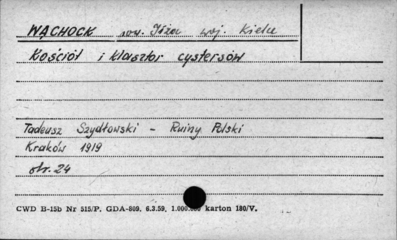 WĄCHOCK pow. Iłża woj. Kielce
Kościół i klasztor cystersów
Tadeusz Szydłowski - Ruiny Polski
Kraków 1919
str. 24
CWD B-15b Nr 515/P. GDA-809. 6.3.59. 1.000.000 karton 180/V.